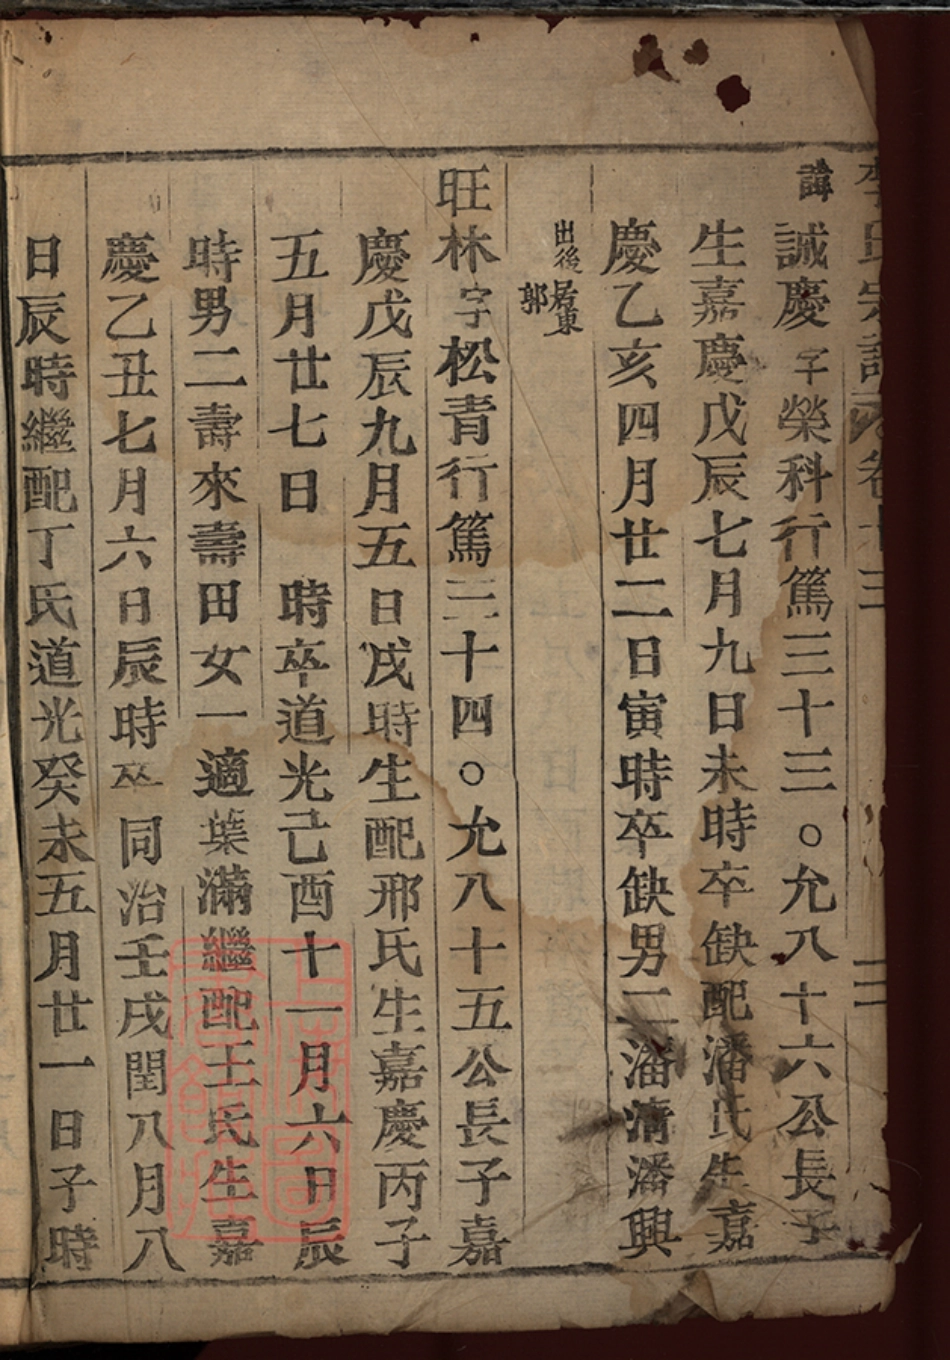 李氏宗譜 卷十三 二
諱誠慶字榮科行篤三十三○允八十六公長子
生嘉慶戊辰七月九日未時卒缺配潘氏生嘉
慶乙亥四月廿二日寅時卒缺男二潘清潘興
出後居東郭
旺林字松青行篤三十四○允八十五公長子嘉
慶戊辰九月五日戌時生配邢氏生嘉慶丙子
五月廿七日 時卒道光己酉十一月六日辰
時男二壽來壽田女一適葉滿繼配王氏生嘉
慶乙丑七月六日辰時卒同治壬戌閏八月八
日辰時繼配丁氏道光癸未五月廿一日子時
上海圖書館藏